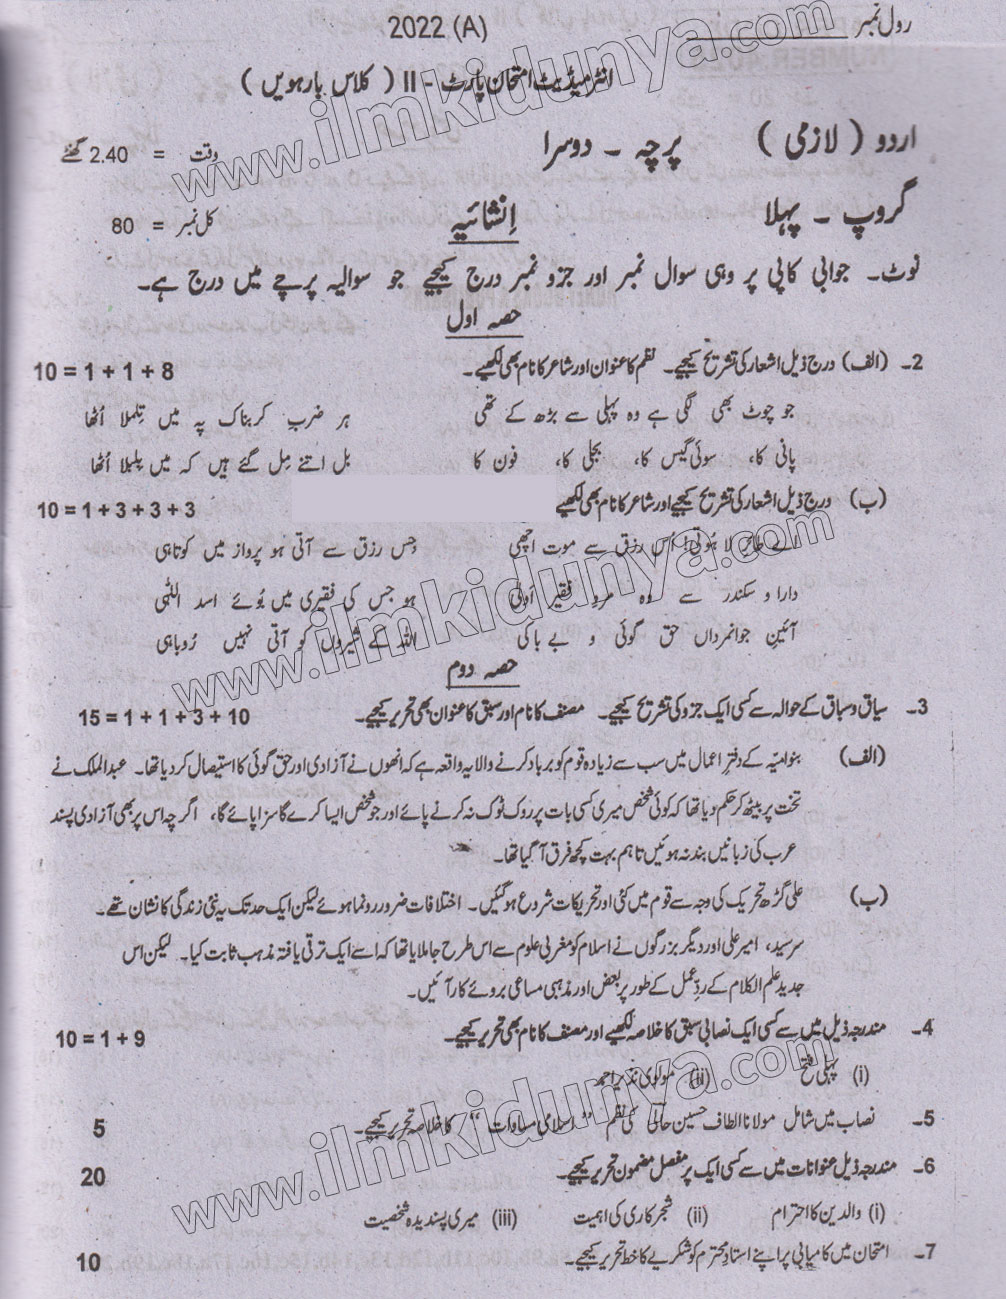 2022 (A) رول نمبر
انٹرمیڈیٹ امتحان پارٹ - II ( کلاس بارہویں )
اردو ( لازمی ) پرچہ ۔ دوسرا وقت = 2.40 گھنٹے
گروپ ۔ پہلا اِنشائیہ کل نمبر = 80
نوٹ۔ جوابی کاپی پر وہی سوال نمبر اور جزو نمبر درج کیجیے جو سوالیہ پرچے میں درج ہے۔
حصہ اول
2۔ (الف) درج ذیل اشعار کی تشریح کیجیے۔ نظم کا عنوان اور شاعر کا نام بھی لکھیے۔ 10 = 1 + 1 + 8
جو چوٹ بھی لگی ہے وہ پہلی سے بڑھ کے تھی ہر ضرب کربناک پہ میں تِلملا اُٹھا
پانی کا، سوئی گیس کا، بجلی کا، فون کا بل اتنے مِل گئے ہیں کہ میں بِلبلا اُٹھا
(ب) درج ذیل اشعار کی تشریح کیجیے اور شاعر کا نام بھی لکھیے 10 = 1 + 3 + 3 + 3
اے طائرِ لا ہُوتی! اُس رزق سے موت اچھی جس رزق سے آتی ہو پرواز میں کوتاہی
دارا و سکندر سے وہ مردِ فقیر اَولیٰ ہو جس کی فقیری میں بُوئے اسد اللّٰہی
آئینِ جوانمرداں حق گوئی و بے باکی اللہ کے شیروں کو آتی نہیں رُوباہی
حصہ دوم
3۔ سیاق و سباق کے حوالہ سے کسی ایک جزو کی تشریح کیجیے۔ مصنف کا نام اور سبق کا عنوان بھی تحریر کیجیے۔ 15 = 1 + 1 + 3 + 10
(الف) بنو امیّہ کے دفترِ اعمال میں سب سے زیادہ قوم کو برباد کرنے والا یہ واقعہ ہے کہ انھوں نے آزادی اور حق گوئی کا استیصال کر دیا تھا۔ عبدالملک نے
تخت پر بیٹھ کر حکم دیا تھا کہ کوئی شخص میری کسی بات پر روک ٹوک نہ کرنے پائے اور جو شخص ایسا کرے گا سزا پائے گا، اگرچہ اس پر بھی آزادی پسند
عرب کی زبانیں بند نہ ہوئیں تاہم بہت کچھ فرق آ گیا تھا۔
(ب) علی گڑھ تحریک کی وجہ سے قوم میں کئی اور تحریکات شروع ہو گئیں۔ اختلافات ضرور رونما ہوئے لیکن ایک حد تک یہ نئی زندگی کا نشان تھے۔
سرسید، امیر علی اور دیگر بزرگوں نے اسلام کو مغربی علوم سے اس طرح جا ملایا تھا کہ اسے ایک ترقی یافتہ مذہب ثابت کیا۔ لیکن اس
جدید علم الکلام کے ردِ عمل کے طور پر بعض اور مذہبی مساعی بروئے کار آئیں۔
4۔ مندرجہ ذیل میں سے کسی ایک نصابی سبق کا خلاصہ لکھیے اور مصنف کا نام بھی تحریر کیجیے۔ 10 = 1 + 9
(i) پہلی فتح (ii) مولوی نذیر احمد
5۔ نصاب میں شامل مولانا الطاف حسین حالیؔ کی نظم "اسلامی مساوات" کا خلاصہ تحریر کیجیے۔ 5
6۔ مندرجہ ذیل عنوانات میں سے کسی ایک پر مفصل مضمون تحریر کیجیے۔ 20
(i) والدین کا احترام (ii) شجر کاری کی اہمیت (iii) میری پسندیدہ شخصیت
7۔ امتحان میں کامیابی پر اپنے استادِ محترم کو شکریے کا خط تحریر کیجیے۔ 10
www.ilmkidunya.com
www.ilmkidunya.com
www.ilmkidunya.com